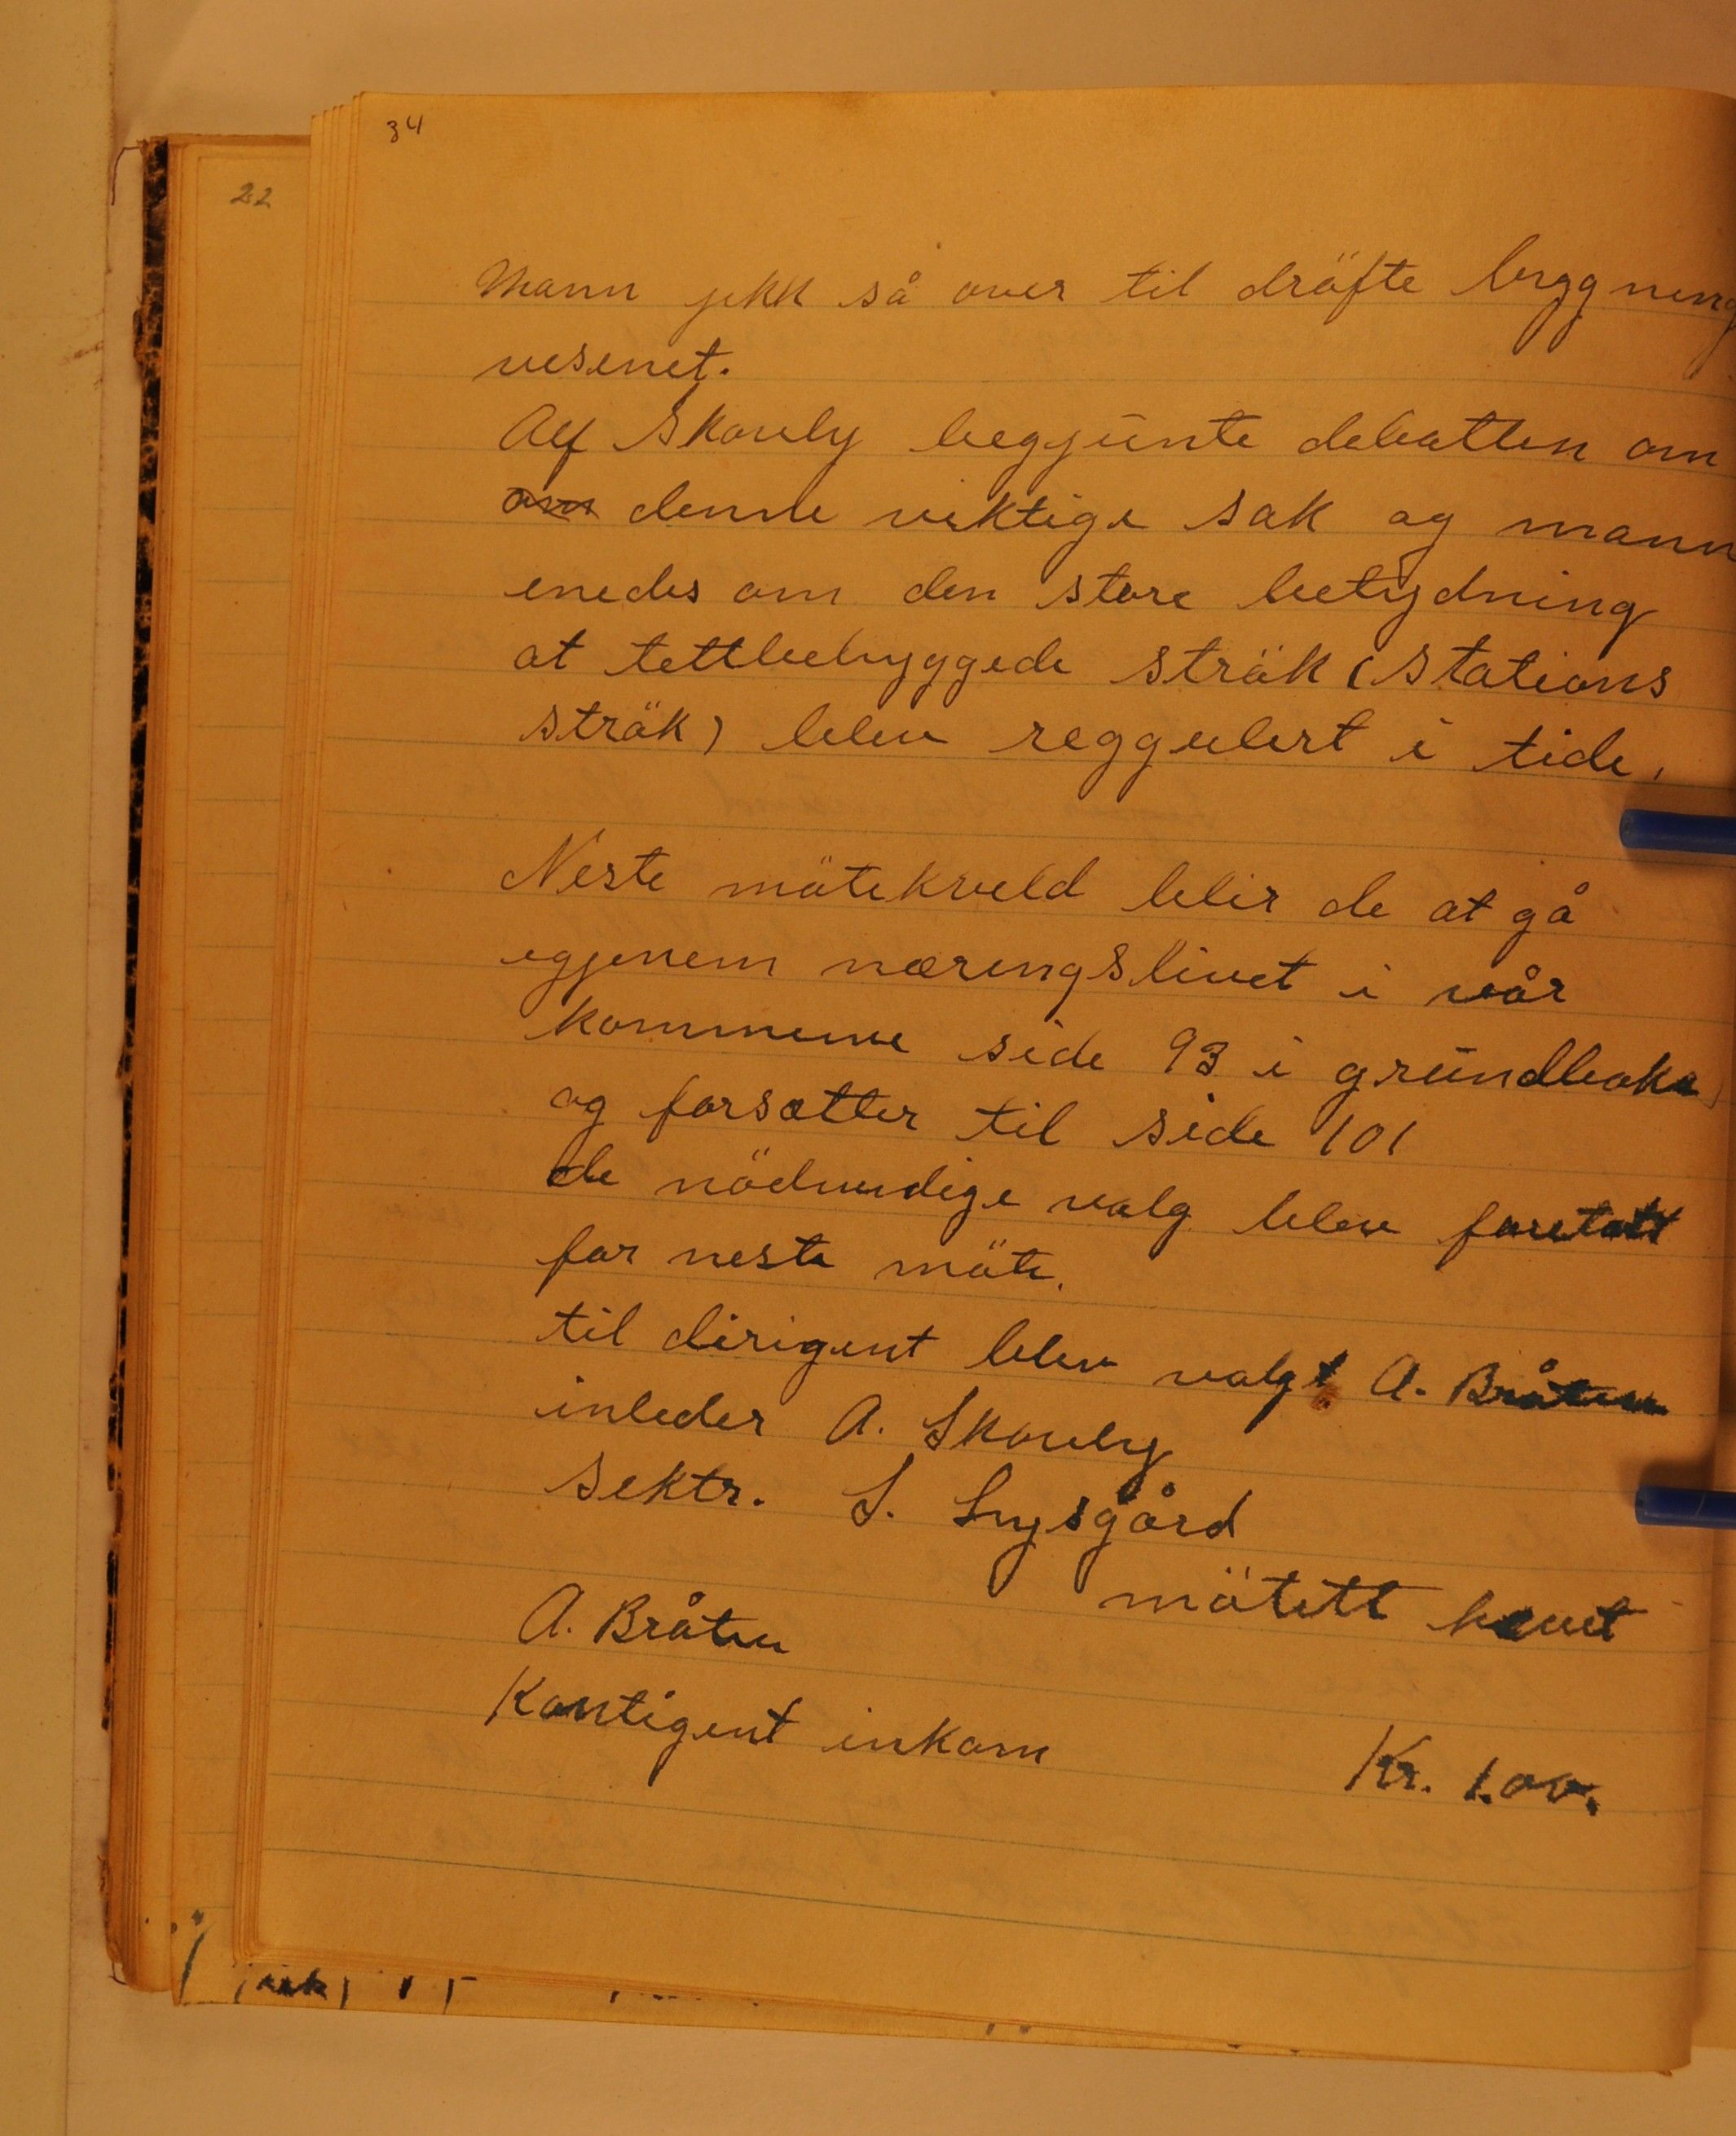 34
22
Mann jekk så over til dröfte byggning
vesenet.
Alf Skovly begjünte debatten om
om denne viktige sak og mann
enedes om den store betydning
at tettbebyggede sträk (stations
sträk) blev reggulert i tide.
Neste mötekveld blir de at gå
egjenem næringslivet i vår
kommune side 93 i gründboka
og forsatter til side 101
de nödvendige valg blev foretatt
for neste möte.
til dirigent blev valgt A. Bråten
inleder A. Skovly
sektr. S. Lysgård
mötett hevet
A. Bråten
Kontigent inkom
Kr. 1.00.